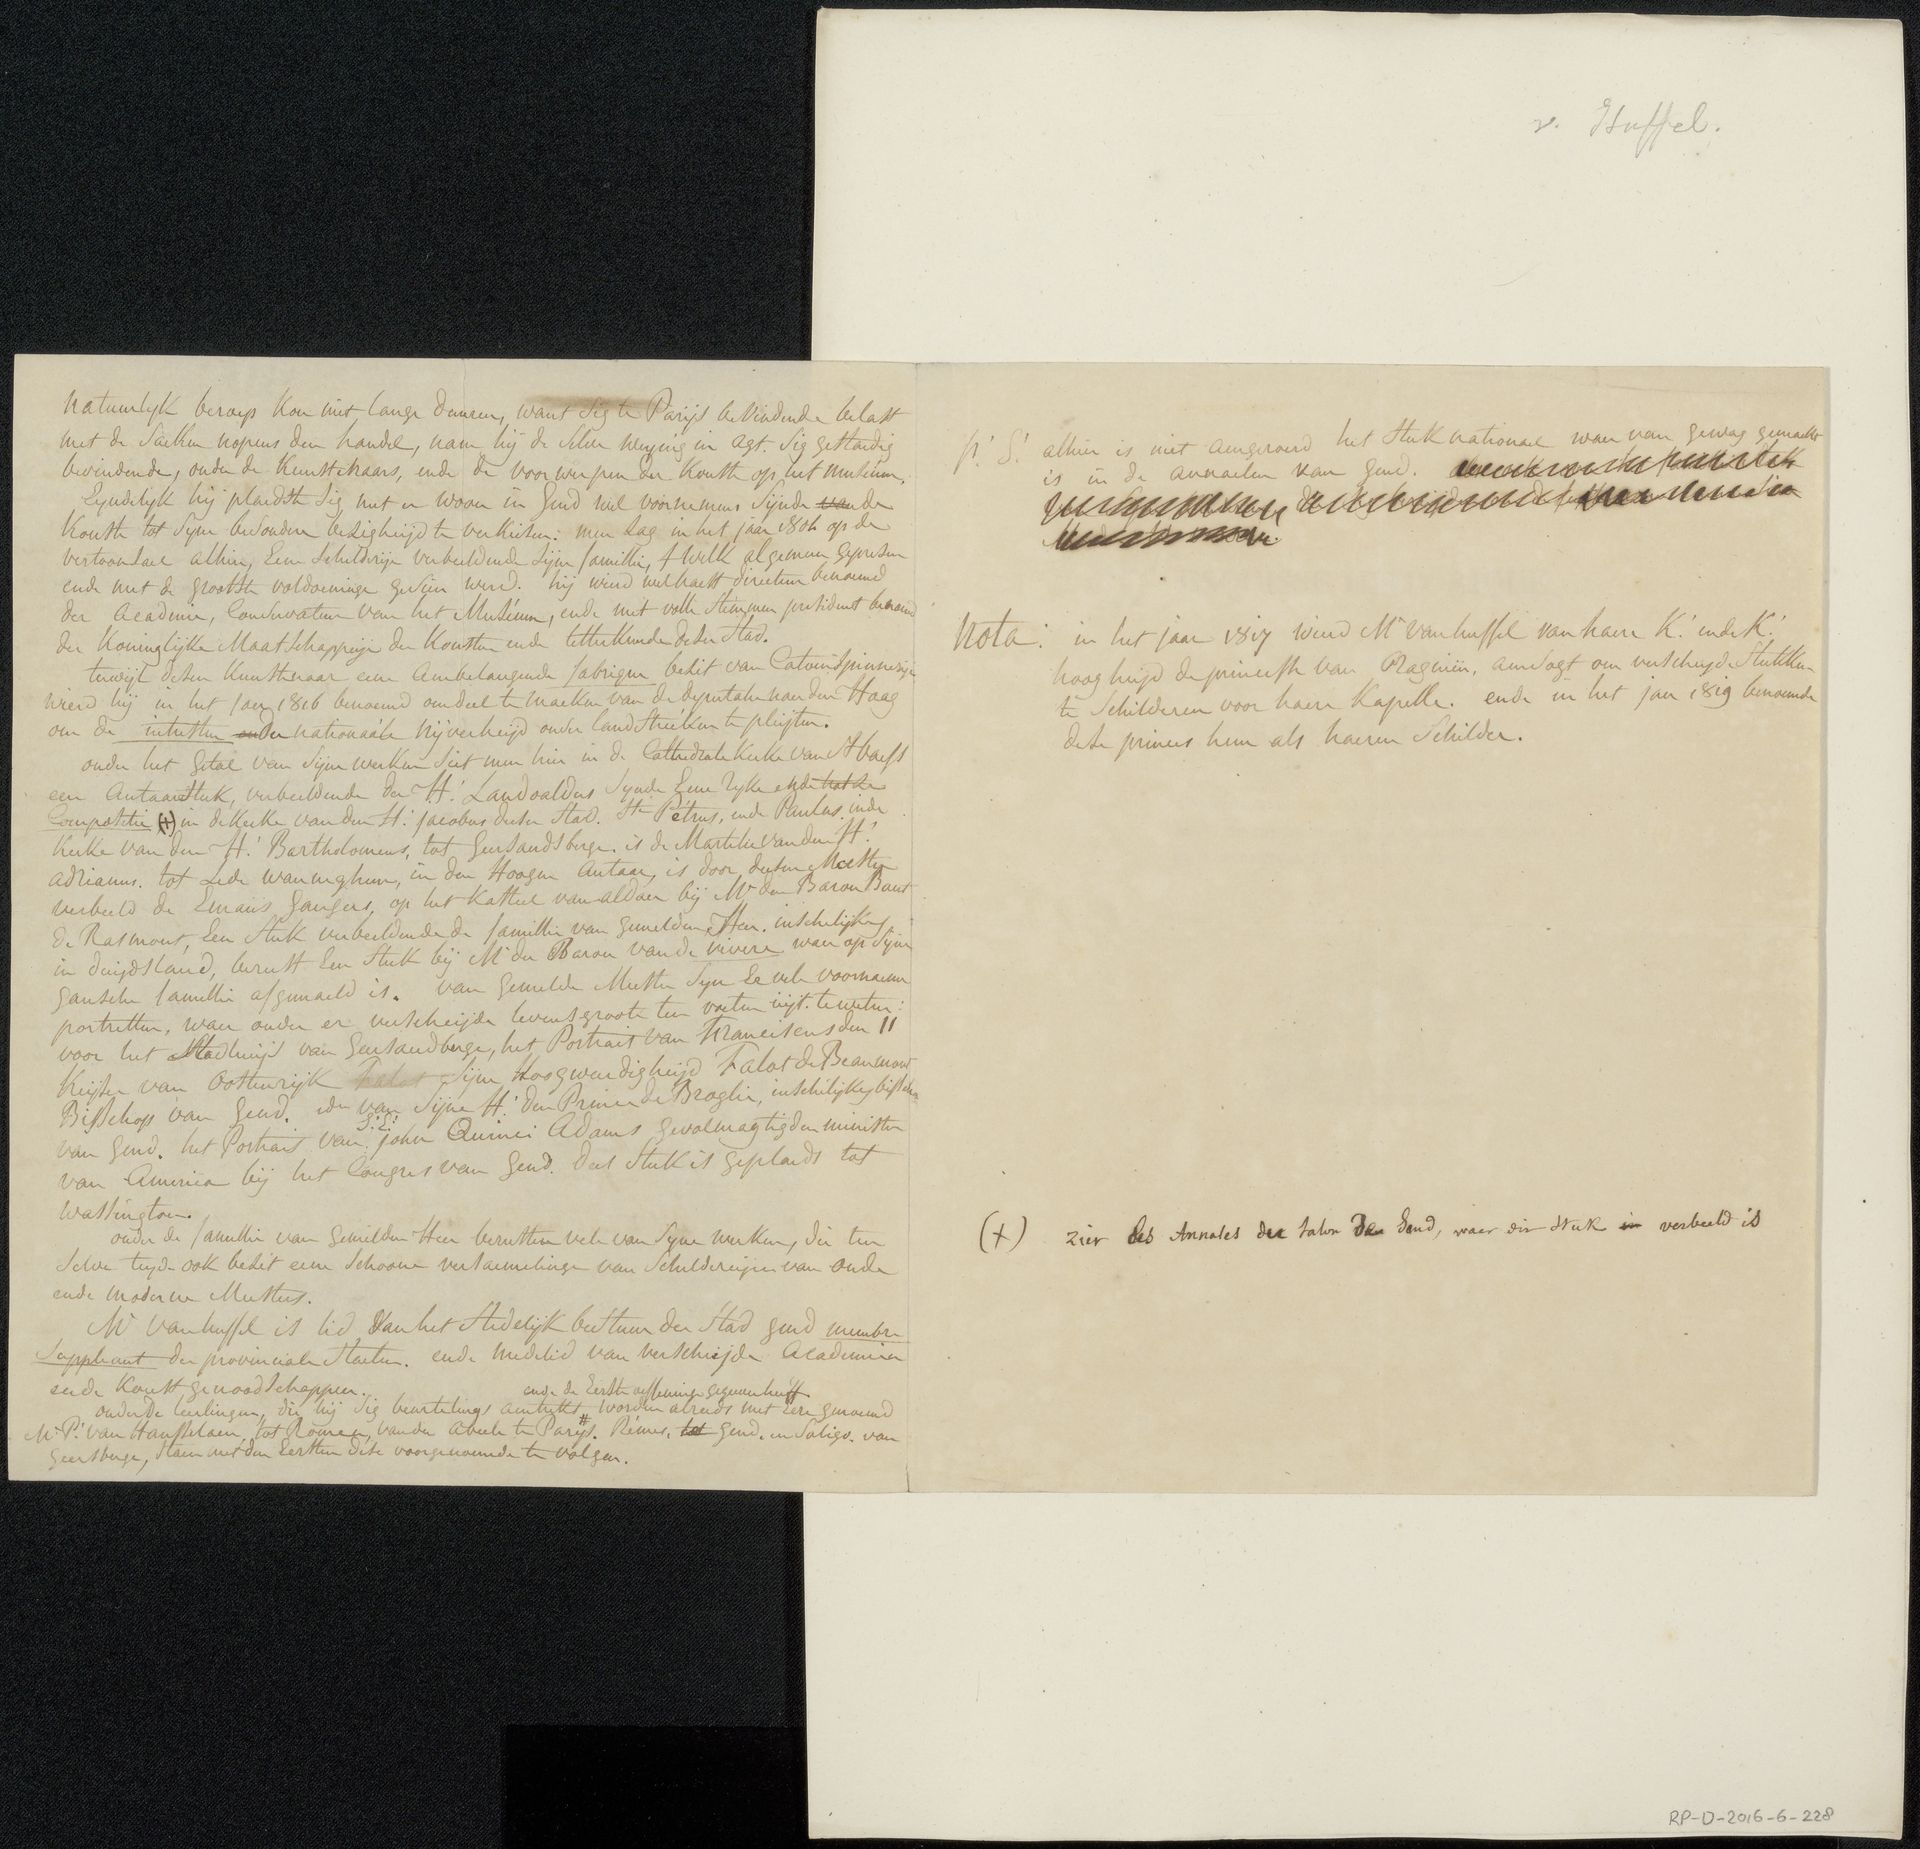 v. Huffel.
natuurlyk beroep kon niet lange deuren, want sig te Parijs bevindende belast
met de saeken nopens den handel, nam hij de selve neyging in agt. sig gestaedig
bevindende, onder de kunstenaars, ende de voorwerpen der konste op het museum,
Eyndelijk hij plaedste sig met er woon in Gend wel voornemens synde van de
konste tot syne besondere besigheijd te verkiesen. men sag in het jaar 1806 op de
vertoonsael alhier, Een schilderije verbeeldende syne familie, 't welk algemeen gepresen
ende met de grootste voldoeninge gesien werd. hij wierd welhaest directeur benoemd
der Academie, Conservateur van het Museum, ende met volle stemmen president benoemd
der koninglijke Maatschappije der konsten ende letterkunde deser stad.
terwijl desen kunstenaar eene aenbelangende fabrique besit van Catoenspinnerije
wierd hij in het jaer 1816 benoemd om deel te maeken van de deputatie naer den Haag
om de intresten onder nationaele nijverheijd onder landstreeken te pleijten.
onder het getal van syne werken siet men hier in de Cathedrale kerke van St baefs
een autaerstuk, verbeeldende den H! Landoaldus synde Eene ryke ende
Compositie (+) in de kerke van den H! Jacobus deser stad. Ste Pétrus, ende Paulus. in de
kerke van den H! Bartholomeus, tot Geersaedsberge. is de Martelie van den H!
adrianus. tot Lede , in den Hoogen Autaer, is door desen Meester
verbeeld de Emaüs gangers, op het kasteel van aldaer bij Mr den Baron Baut
de Rasmont, Een stuk verbeeldende de famillie van gemelden Heer. inschelijks
in duijdsland, berust Een stuk bij Mr den Baron van de vivere waer op syne
gansche famillie afgemaeld is. van gemelde Meester syn Er vele voornaeme
portretten, waer onder er verscheijde levensgroote ten voeten uijt. te weten:
voor het stadhuijs van Geersaedberge, het Portrait van Franciscus den II
keijser van Oostenrijk Falot syne Hoogweirdigheijd Falot de Beaumont
Bisschop van Gend. en van Syne H! den Prince de Broglie, inschelijks bisschop
van Gend. het Portrait van S! E! john Quinci Adams gevolmagtigden minister
van America bij het Congres van Gend. dees stuk is geplaeds tot
Wassington.
onder de famillie van gemelden Heer berusten vele van syne werken, die ten
selve tyde ook besit eene schoone versaemelinge van schilderijen van oude
ende moderne Meesters.
Mr Vanhuffel is lid van het stedelijk bestuur der stad gend membre
suppleant der provinciale staeten. ende medelid van verscheijde Academien
ende konstgenoodschappen.
ende de Eerste oeffeninge gegeven heeft
onder de leerlingen, die hij sig beurtelings aentrekt, worden alreeds met Eere genoemd
Mr P! van Hanselaere, tot Roomen, vanden Abeele te Parys. Rémer, tot Gend. en Soligo. van
Geersberge, staen met den Eersten dese voorgenoemde te volgen.
p! S! alhier is niet aengeroerd het stuk nationael waer van gewag gemaekt
is in de annaelen van Gend.
Nota: in het jaar 1817 wierd Mr Vanhuffel van haere K! ende K!
hoogheijd de princesse van Oragnien, aensogt om verscheyde stukken
te schilderen voor haere kapelle. ende in het jaer 1819 benoemde
dese princes hem als haeren schilder.
(+) zier les Annales du salon de Gend, waer dit stuk in verbeeld is
RP-D-2016-6-228